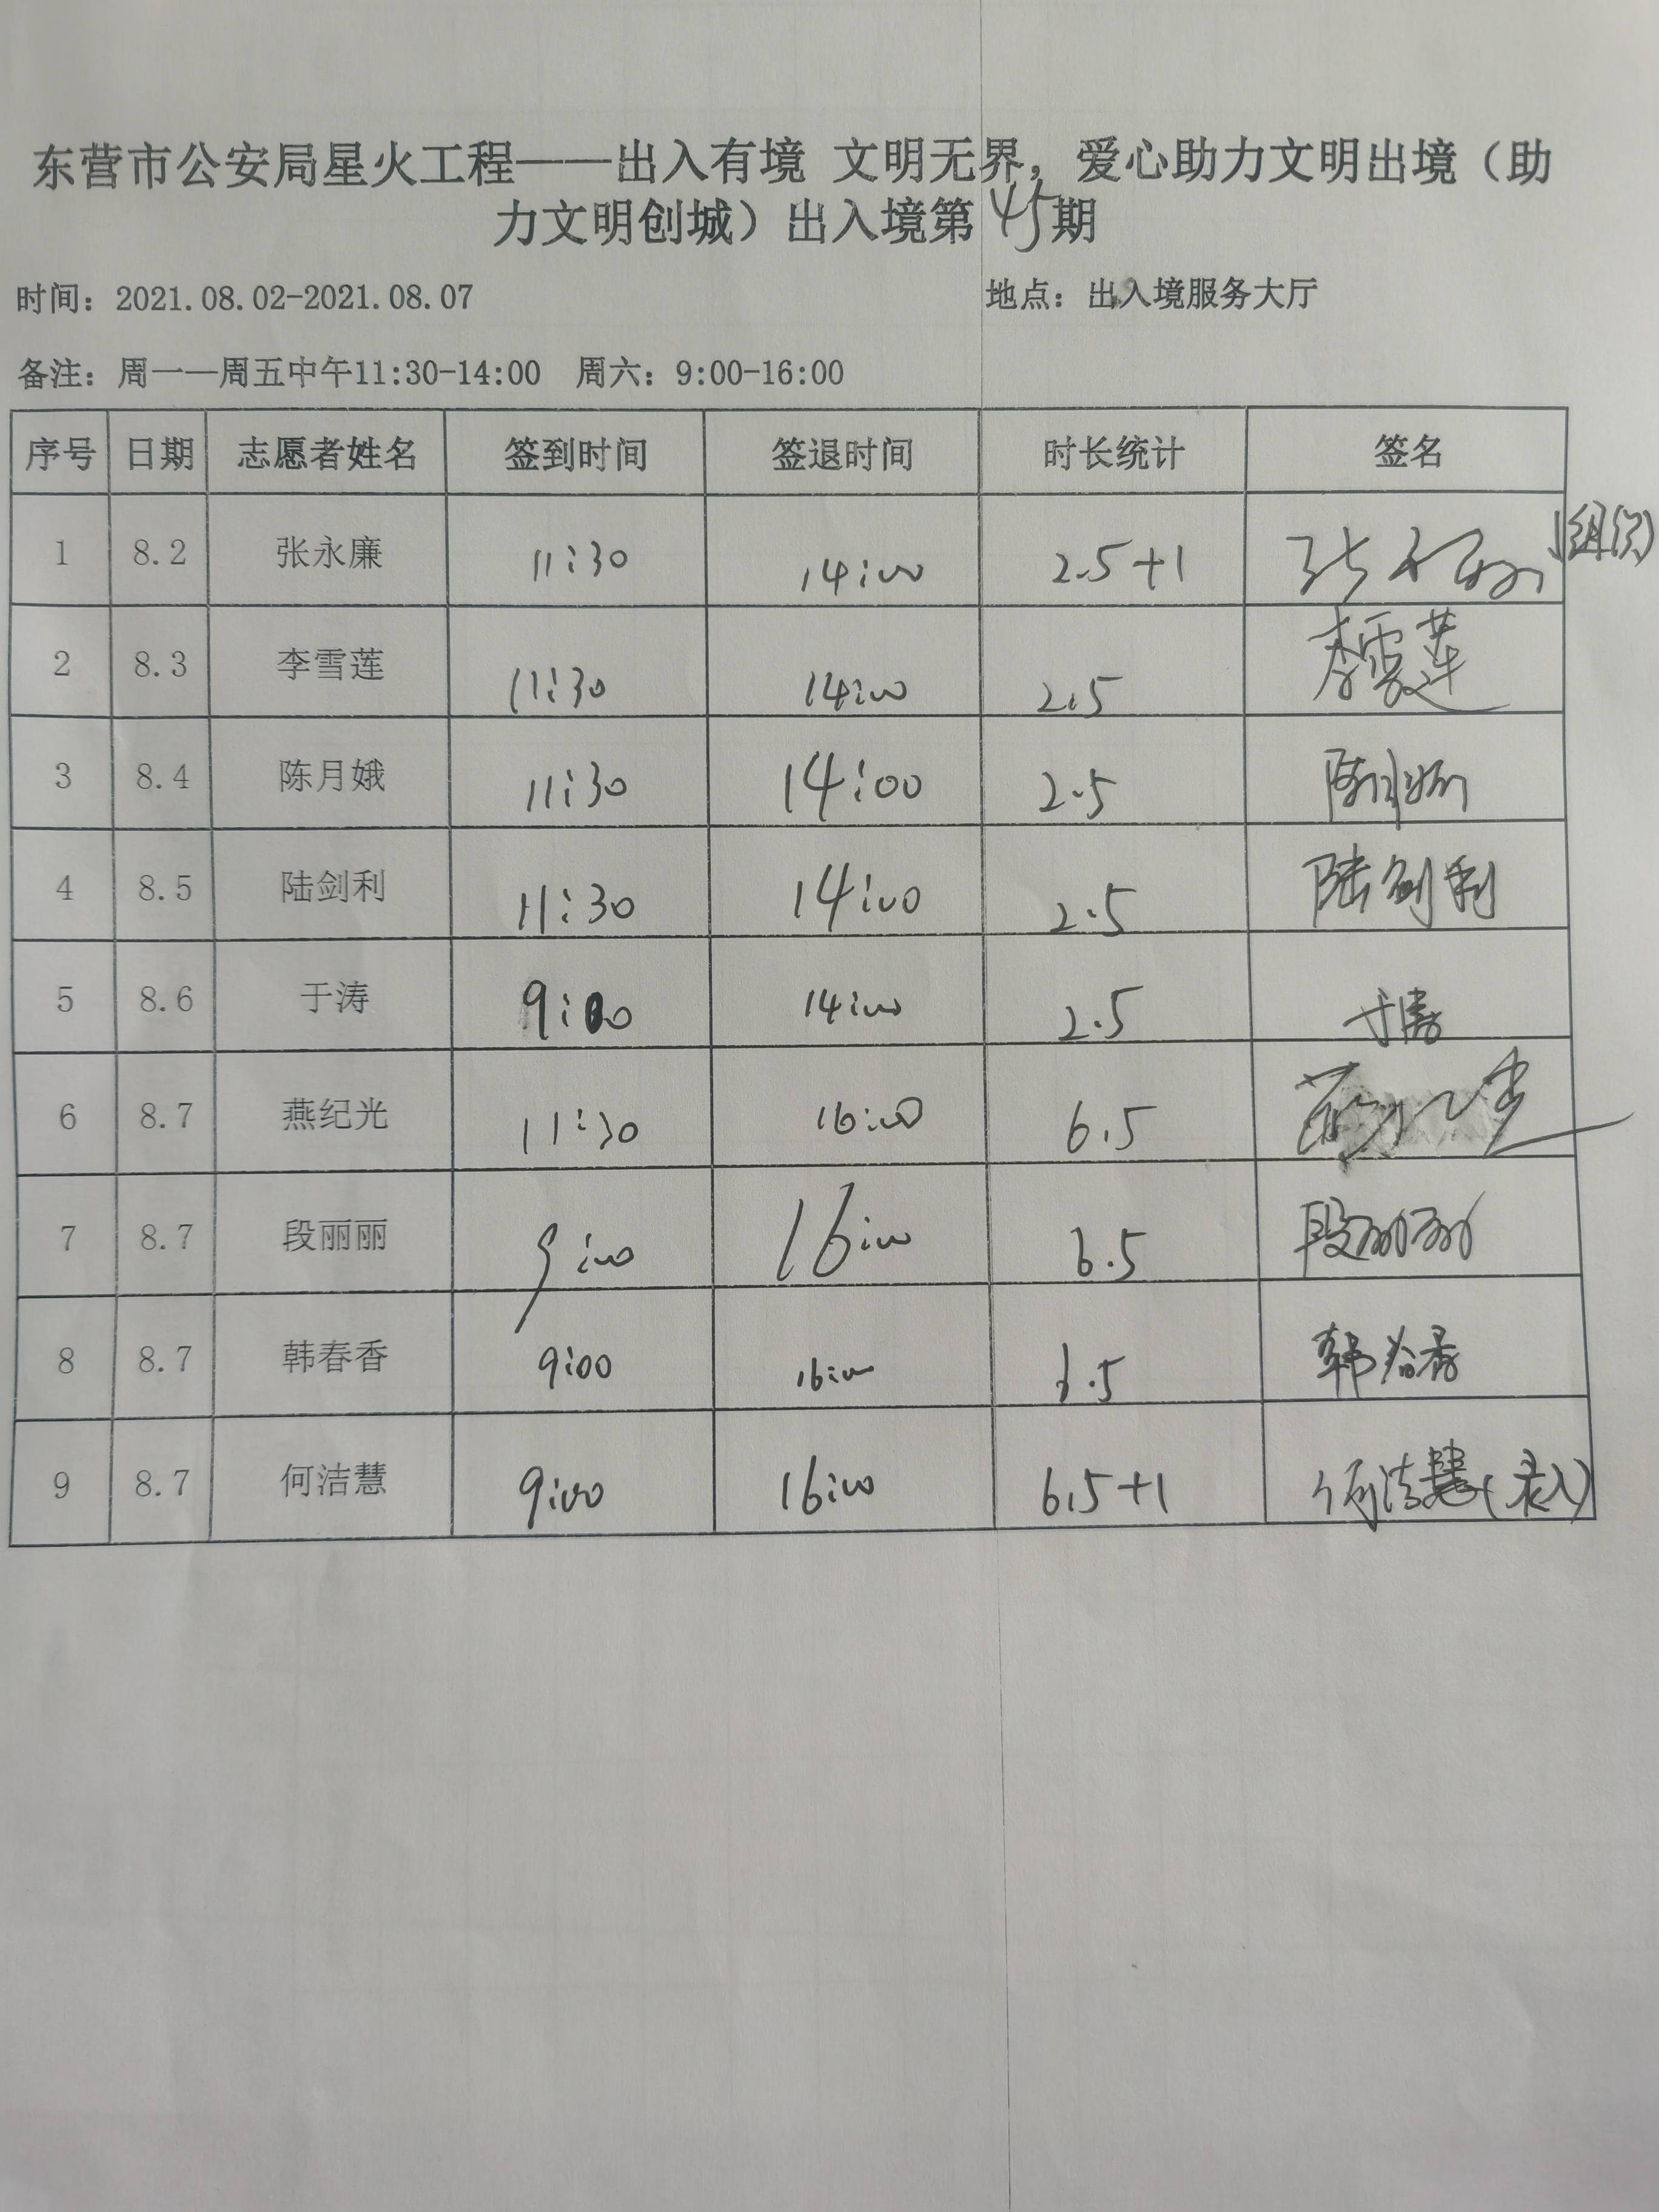 东营市公安局星火工程——出入有境 文明无界，爱心助力文明出境（助
力文明创城）出入境第45期
时间：2021.08.02-2021.08.07 地点：出入境服务大厅
备注：周一—周五中午11:30-14:00 周六：9:00-16:00
序号 日期 志愿者姓名 签到时间 签退时间 时长统计 签名
1 8.2 张永廉 11:30 14:00 2.5+1 张永廉（组织）
2 8.3 李雪莲 11:30 14:00 2.5 李雪莲
3 8.4 陈月娥 11:30 14:00 2.5 陈月娥
4 8.5 陆剑利 11:30 14:00 2.5 陆剑利
5 8.6 于涛 9:00 14:00 2.5 于涛
6 8.7 燕纪光 11:30 16:00 6.5
7 8.7 段丽丽 9:00 16:00 6.5 段丽丽
8 8.7 韩春香 9:00 16:00 6.5 韩春香
9 8.7 何洁慧 9:00 16:00 6.5+1 何洁慧（录入）